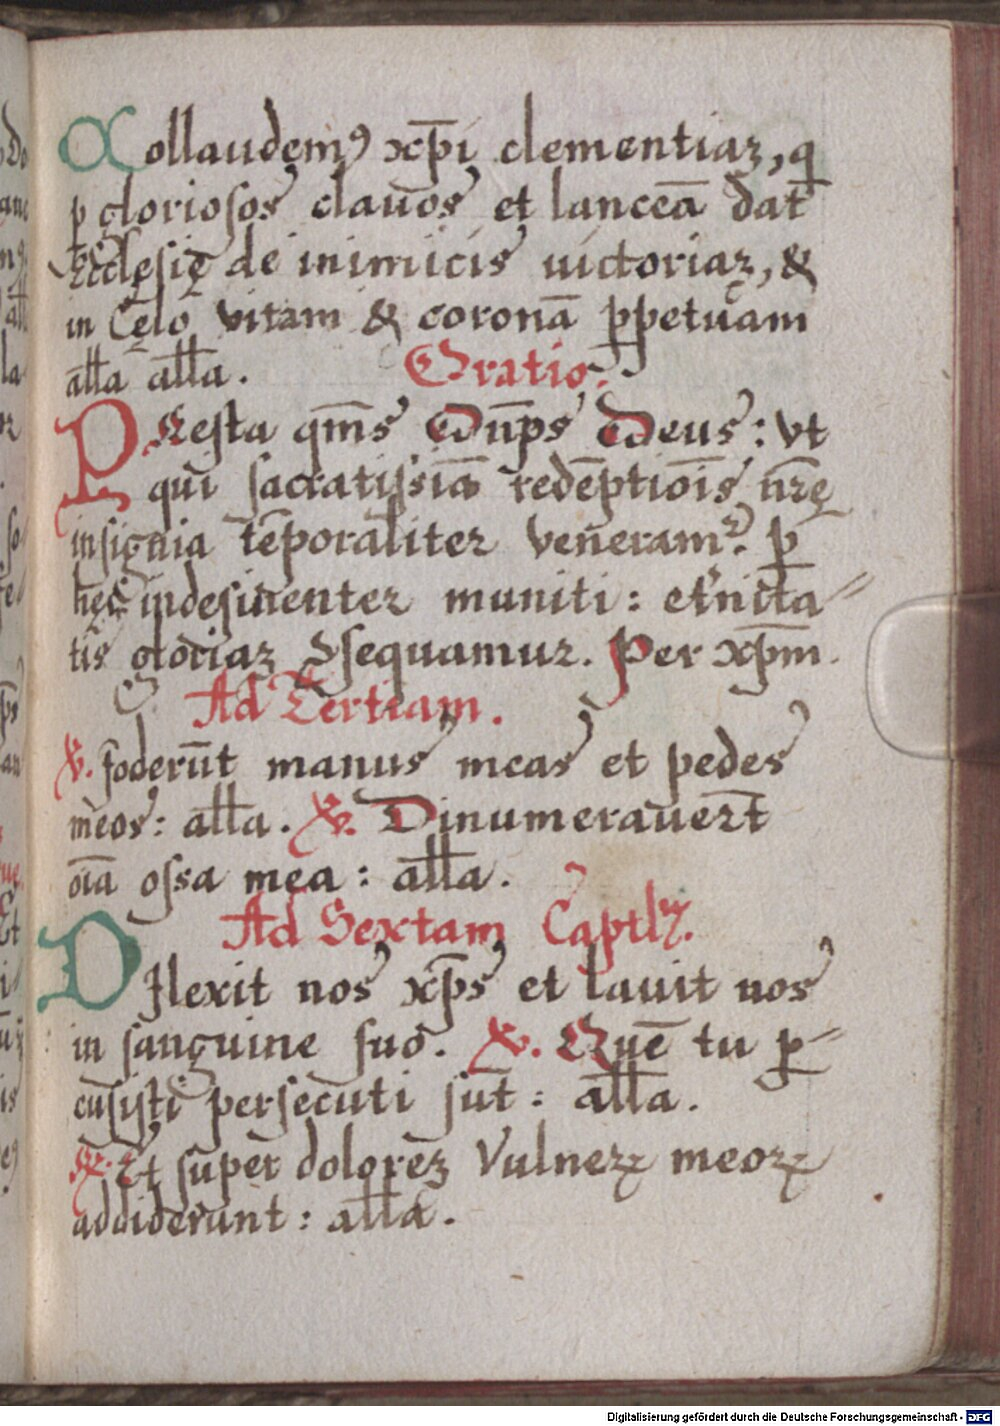 Collaudemꝰ xp̄i clementiaꝫ, q
ꝑ gloriosos clauos et lanceā dat
Ecclesię de inimicis uictoriaꝫ, &
in Cęlo vitam & coronā ꝑpetuam
alla alla. Oratio.
PResta qm̄s Om̄ps Deus: vt
qui sacratissiā redēptiōis nr̄ę
insignia tēporaliter veneramᷣ. ꝑ
hęc indesinenter muniti: et̓nita
tis gloriaꝫ ꝯsequamur. Per xp̄m.
Ad Tertiam.
℣. foderūt manus meas et pedes
meos: alla. ℣. Dinumerauer̄t
oīa ossa mea: alla.
Ad Sextam Captlꝫ.
DIlexit nos xp̄s et lauit nos
in sanguine suo. ℣. Quē tu ꝑ
cusisti persecuti sūt: alla.
℣. Et super doloreꝫ Vulneꝝ meoꝝ
addiderunt: alla.
Digitalisierung gefördert durch die Deutsche Forschungsgemeinschaft - DFG